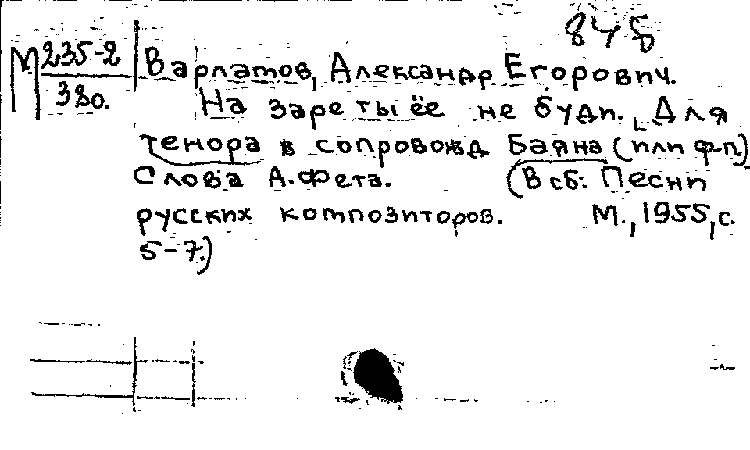 848
М 235-2 Варламов, Александр Егорович.
380. На заре ты её не буди. Для
тенора в сопровожд Баяна (или ф-п.)
Слова А. Фета. (В сб: Песни
русских композиторов. М., 1955, с.
5-7.)